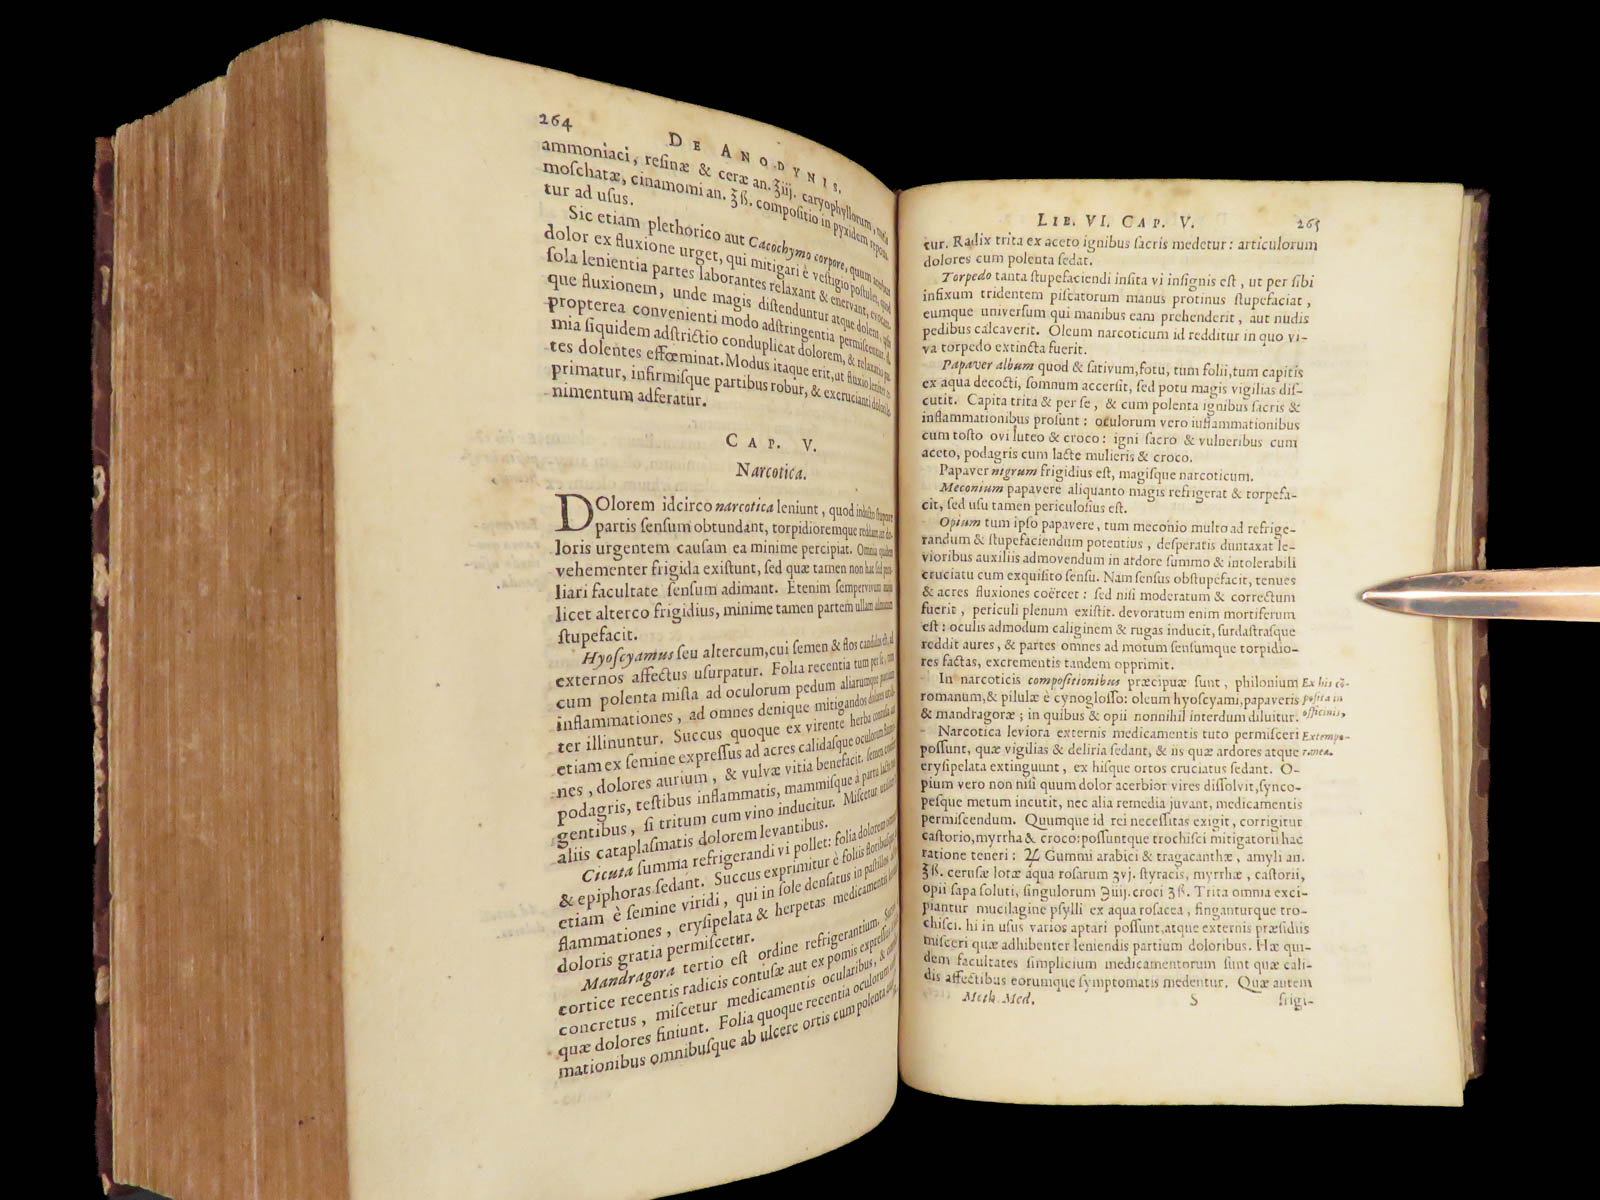 264
DE ANODYNIS,
ammoniaci, resinæ & ceræ an. ℥iij. caryophyllorum, nucis
moschatæ, cinamomi an. ℥ß. compositio in pyxidem repona-
tur ad usus.
Sic etiam plethorico aut Cacochymo corpore, quum
dolor ex fluxione urget, qui mitigari è vestigio postulet, quod
sola lenientia partes laborantes relaxant & enervant, evocant-
que fluxionem, unde magis distenduntur atque dolent,
propterea convenienti modo adstringentia permiscentur.
mia siquidem adstrictio conduplicat dolorem, & relaxatio par-
tes dolentes effœminat. Modus itaque erit, ut fluxio leniter re-
primatur, infirmisque partibus robur, & excrucianti dolori le-
nimentum adferatur.
CAP. V.
Narcotica.
DOlorem idcirco narcotica leniunt, quod inducto stupore
partis sensum obtundant, torpidioremque reddant, ut do-
loris urgentem causam ea minime percipiat. Omnia quidem
vehementer frigida existunt, sed quæ tamen non hac sed pecu-
liari facultate sensum adimant. Etenim sempervivum
licet alterco frigidius, minime tamen partem ullam admotum
stupefacit.
Hyoscyamus seu altercum, cui semen & flos candidus est, ad
externos affectus usurpatur. Folia recentia tum per se, tum
cum polenta mista ad oculorum pedum aliarumque partium
inflammationes, ad omnes denique mitigandos dolores utili-
ter illinuntur. Succus quoque ex virente herba contusa aut
etiam ex semine expressus ad acres calidasque oculorum fluxio-
nes, dolores aurium, & vulvæ vitia benefacit. semen
podagris, testibus inflammatis, mammisque à partu lacte tur-
gentibus, si tritum cum vino inducitur. Miscetur utiliter
aliis cataplasmatis dolorem levantibus.
Cicuta summa refrigerandi vi pollet: folia dolorem
& epiphoras sedant. Succus exprimitur è foliis floribusque
etiam è semine viridi, qui in sole densatus in pastillos
flammationes, erysipelata & herpetas medicamentis
doloris gratia permiscetur.
Mandragora tertio est ordine refrigerantium. Succus
cortice recentis radicis contusæ aut ex pomis expressus
concretus, miscetur medicamentis ocularibus, &
quæ dolores finiunt. Folia quoque recentia oculorum
mationibus omnibusque ab ulcere ortis cum polenta
LIB. VI. CAP. V. 265
tur. Radix trita ex aceto ignibus sacris medetur: articulorum
dolores cum polenta sedat.
Torpedo tanta stupefaciendi insita vi insignis est, ut per sibi
infixum tridentem piscatorum manus protinus stupefaciat,
eumque universum qui manibus eam prehenderit, aut nudis
pedibus calcaverit. Oleum narcoticum id redditur in quo vi-
va torpedo extincta fuerit.
Papaver album quod & sativum, fotu, tum folii, tum capitis
ex aqua decocti, somnum accersit, sed potu magis vigilias dis-
cutit. Capita trita & per se, & cum polenta ignibus sacris &
inflammationibus prosunt: oculorum vero iuflammationibus
cum tosto ovi luteo & croco: igni sacro & vulneribus cum
aceto, podagris cum lacte mulieris & croco.
Papaver nigrum frigidius est, magisque narcoticum.
Meconium papavere aliquanto magis refrigerat & torpefa-
cit, sed usu tamen periculosius est.
Opium tum ipso papavere, tum meconio multo ad refrige-
randum & stupefaciendum potentius, desperatis duntaxat le-
vioribus auxiliis admovendum in ardore summo & intolerabili
cruciatu cum exquisito sensu. Nam sensus obstupefacit, tenues
& acres fluxiones coërcet: sed nisi moderatum & correctum
fuerit, periculi plenum existit. devoratum enim mortiferum
est: oculis admodum caliginem & rugas inducit, surdastrasque
reddit aures, & partes omnes ad motum sensumque torpidio-
res factas, excrementis tandem opprimit.
In narcoticis compositionibus præcipuæ sunt, philonium Ex his cō-
romanum, & pilulæ è cynoglosso: oleum hyoscyami, papaveris posita in
& mandragoræ; in quibus & opii nonnihil interdum diluitur. officinis,
Narcotica leviora externis medicamentis tuto permisceri Extempo-
possunt, quæ vigilias & deliria sedant, & iis quæ ardores atque ranea.
erysipelata extinguunt, ex hisque ortos cruciatus sedant. O-
pium vero non nisi quum dolor acerbior vires dissolvit, synco-
pesque metum incutit, nec alia remedia juvant, medicamentis
permiscendum. Quumque id rei necessitas exigit, corrigitur
castorio, myrrha & croco: possuntque trochisci mitigatorii hac
ratione teneri: ℞ Gummi arabici & tragacanthæ, amyli an.
℥ß. cerusæ lotæ aqua rosarum ʒvj. styracis, myrrhæ, castorii,
opii sapa soluti, singulorum ℈iiij. croci ʒß. Trita omnia exci-
piantur mucilagine psylli ex aqua rosacea, finganturque tro-
chisci. hi in usus varios aptari possunt, atque externis præsidiis
misceri quæ adhibenter leniendis partium doloribus. Hæ qui-
dem facultates simplicium medicamentorum sunt quæ cali-
dis affectibus eorumque symptomatis medentur. Quæ autem
Meth. Med. S frigi-